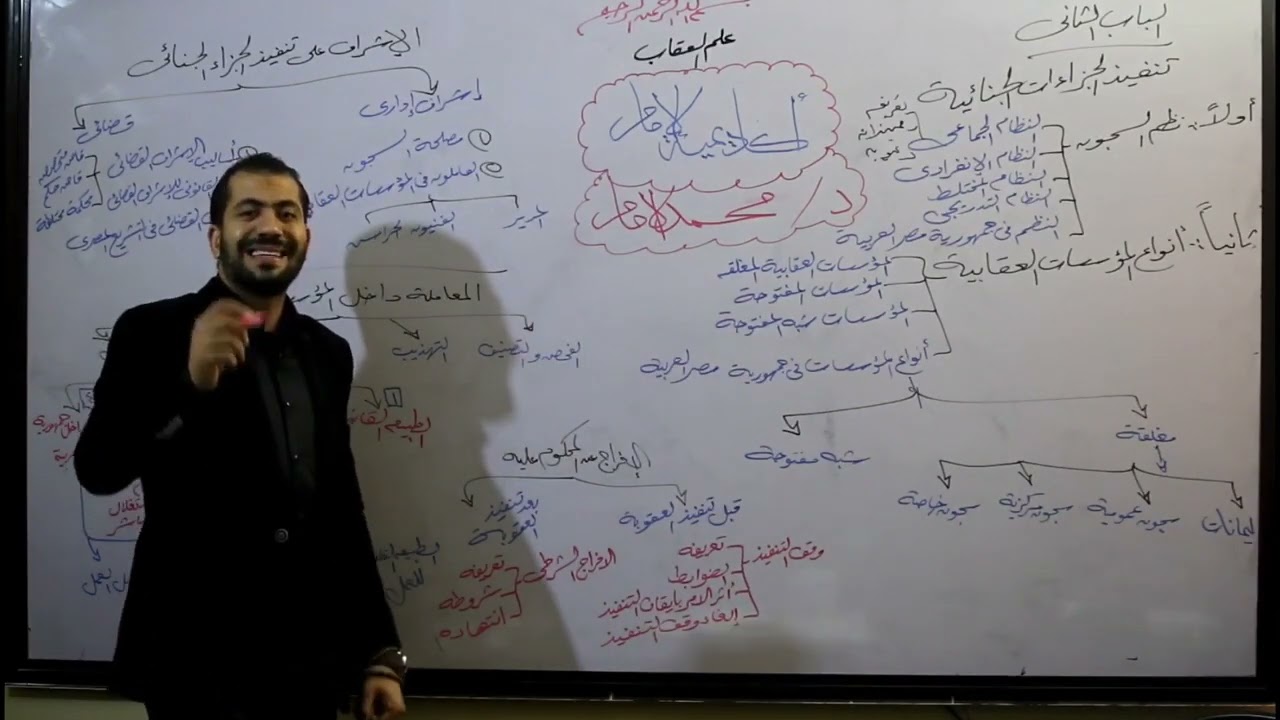 بسم الله الرحمن الرحيم
علم العقاب
أكاديمية الإمام
د/ محمد الإمام
الباب الثانى
تنفيذ الجزاءات الجنائية
أولاً: نظم السجون
النظام الجماعى
تعريفه
مميزاته
عيوبه
النظام الإنفرادى
النظام المختلط
النظام التدريجى
النظم فى جمهورية مصر العربية
ثانياً: أنواع المؤسسات العقابية
المؤسسات العقابية المغلقه
المؤسسات المفتوحة
المؤسسات شبه المفتوحة
أنواع المؤسسات فى جمهورية مصر العربية
مغلقة
شبه مفتوحة
ليمانات
سجون عمومية
سجون مركزية
سجون خاصة
الإشراف على تنفيذ الجزاء الجنائى
إشراف إدارى
١ مصلحة السجون
٢ العاملون فى المؤسسات العقا
المدير
الفنيون
الحراس
قضائى
أساليب الإشراف القضائى
محكمة مختلطة
القانونى للإشراف القضائى
القضائى فى التشريع المصرى
المعاملة داخل المؤس
الفحص والتصنيف
التهذيب
١
الإفراج عن المحكوم عليه
قبل تنفيذ العقوبة
بعد تنفيذ العقوبة
وقف التنفيذ
تعريفه
الضوابط
أثر الامر بإيقاف التنفيذ
إلغاء وقف التنفيذ
الافراج الشرطى
تعريفه
شروطه
انتهاءه
للعمل